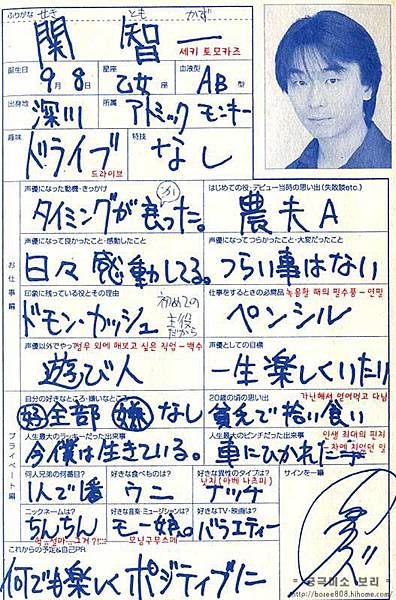 ふりがな せき とも かず
関智一
세키 토모카즈
誕生日 9月8日 星座 乙女座 血液型 AB型
出身地 深川 所属 アトミックモンキー
趣味 ドライブ 特技 なし
드라이브
お仕事編
声優になった動機・きっかけ はじめての役・デビュー当時の思い出(失敗談etc.)
タイミングが良った。 農夫A
声優になって良かったこと・感動したこと 声優になってつらかったこと・大変だったこと
日々感動してる。 つらい事はない
印象に残っている役とその理由 仕事をするときの必需品 녹음할 때의 필수품 - 연필
ドモン・カッシュ 初めての主役だから ペンシル
声優以外でやっ 성우 외에 해보고 싶은 직업 - 백수 声優としての目標
遊び人 一生楽しくいたい
プライベート編
自分の好きなところ・嫌いなところ 20歳の頃の思い出 가난해서 얻어먹고 다님
好 全部 嫌 なし 貧乏で拾い食い
人生最大のラッキーだった出来事 人生最大のピンチだった出来事 인생 최대의 핀치
今僕は生きている。 車にひかれた事
何人兄弟の何番目? 好きな食べものは? 好きな異性のタイプは? サインを一筆
1人で1番 ウニ ナッチ
낫치 (아베 나츠미)
ニックネームは? 好きな音楽・ミュージシャンは? 好きなTV・映画は?
ちんちん モー娘。 バラエティー
모닝구무스메
これからの予定&自己PR
何でも楽しくポジティブに
- 궁극미소 보리 -
http://boree808.hihome.com/